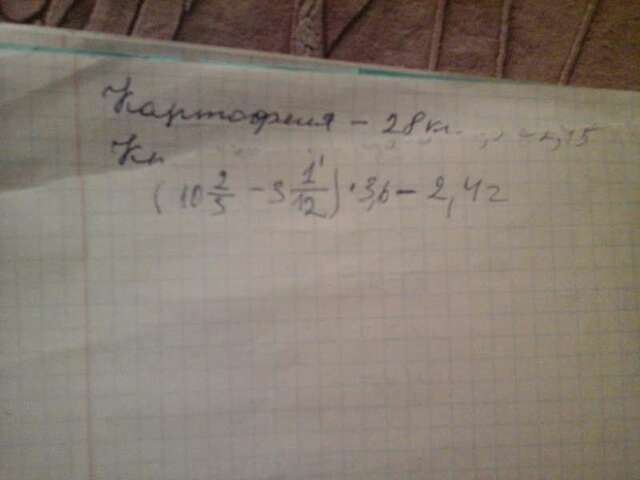 Картофеля - 28 кг.
Кн
(10 2/3 - 3 1/12) · 3,6 - 2,42